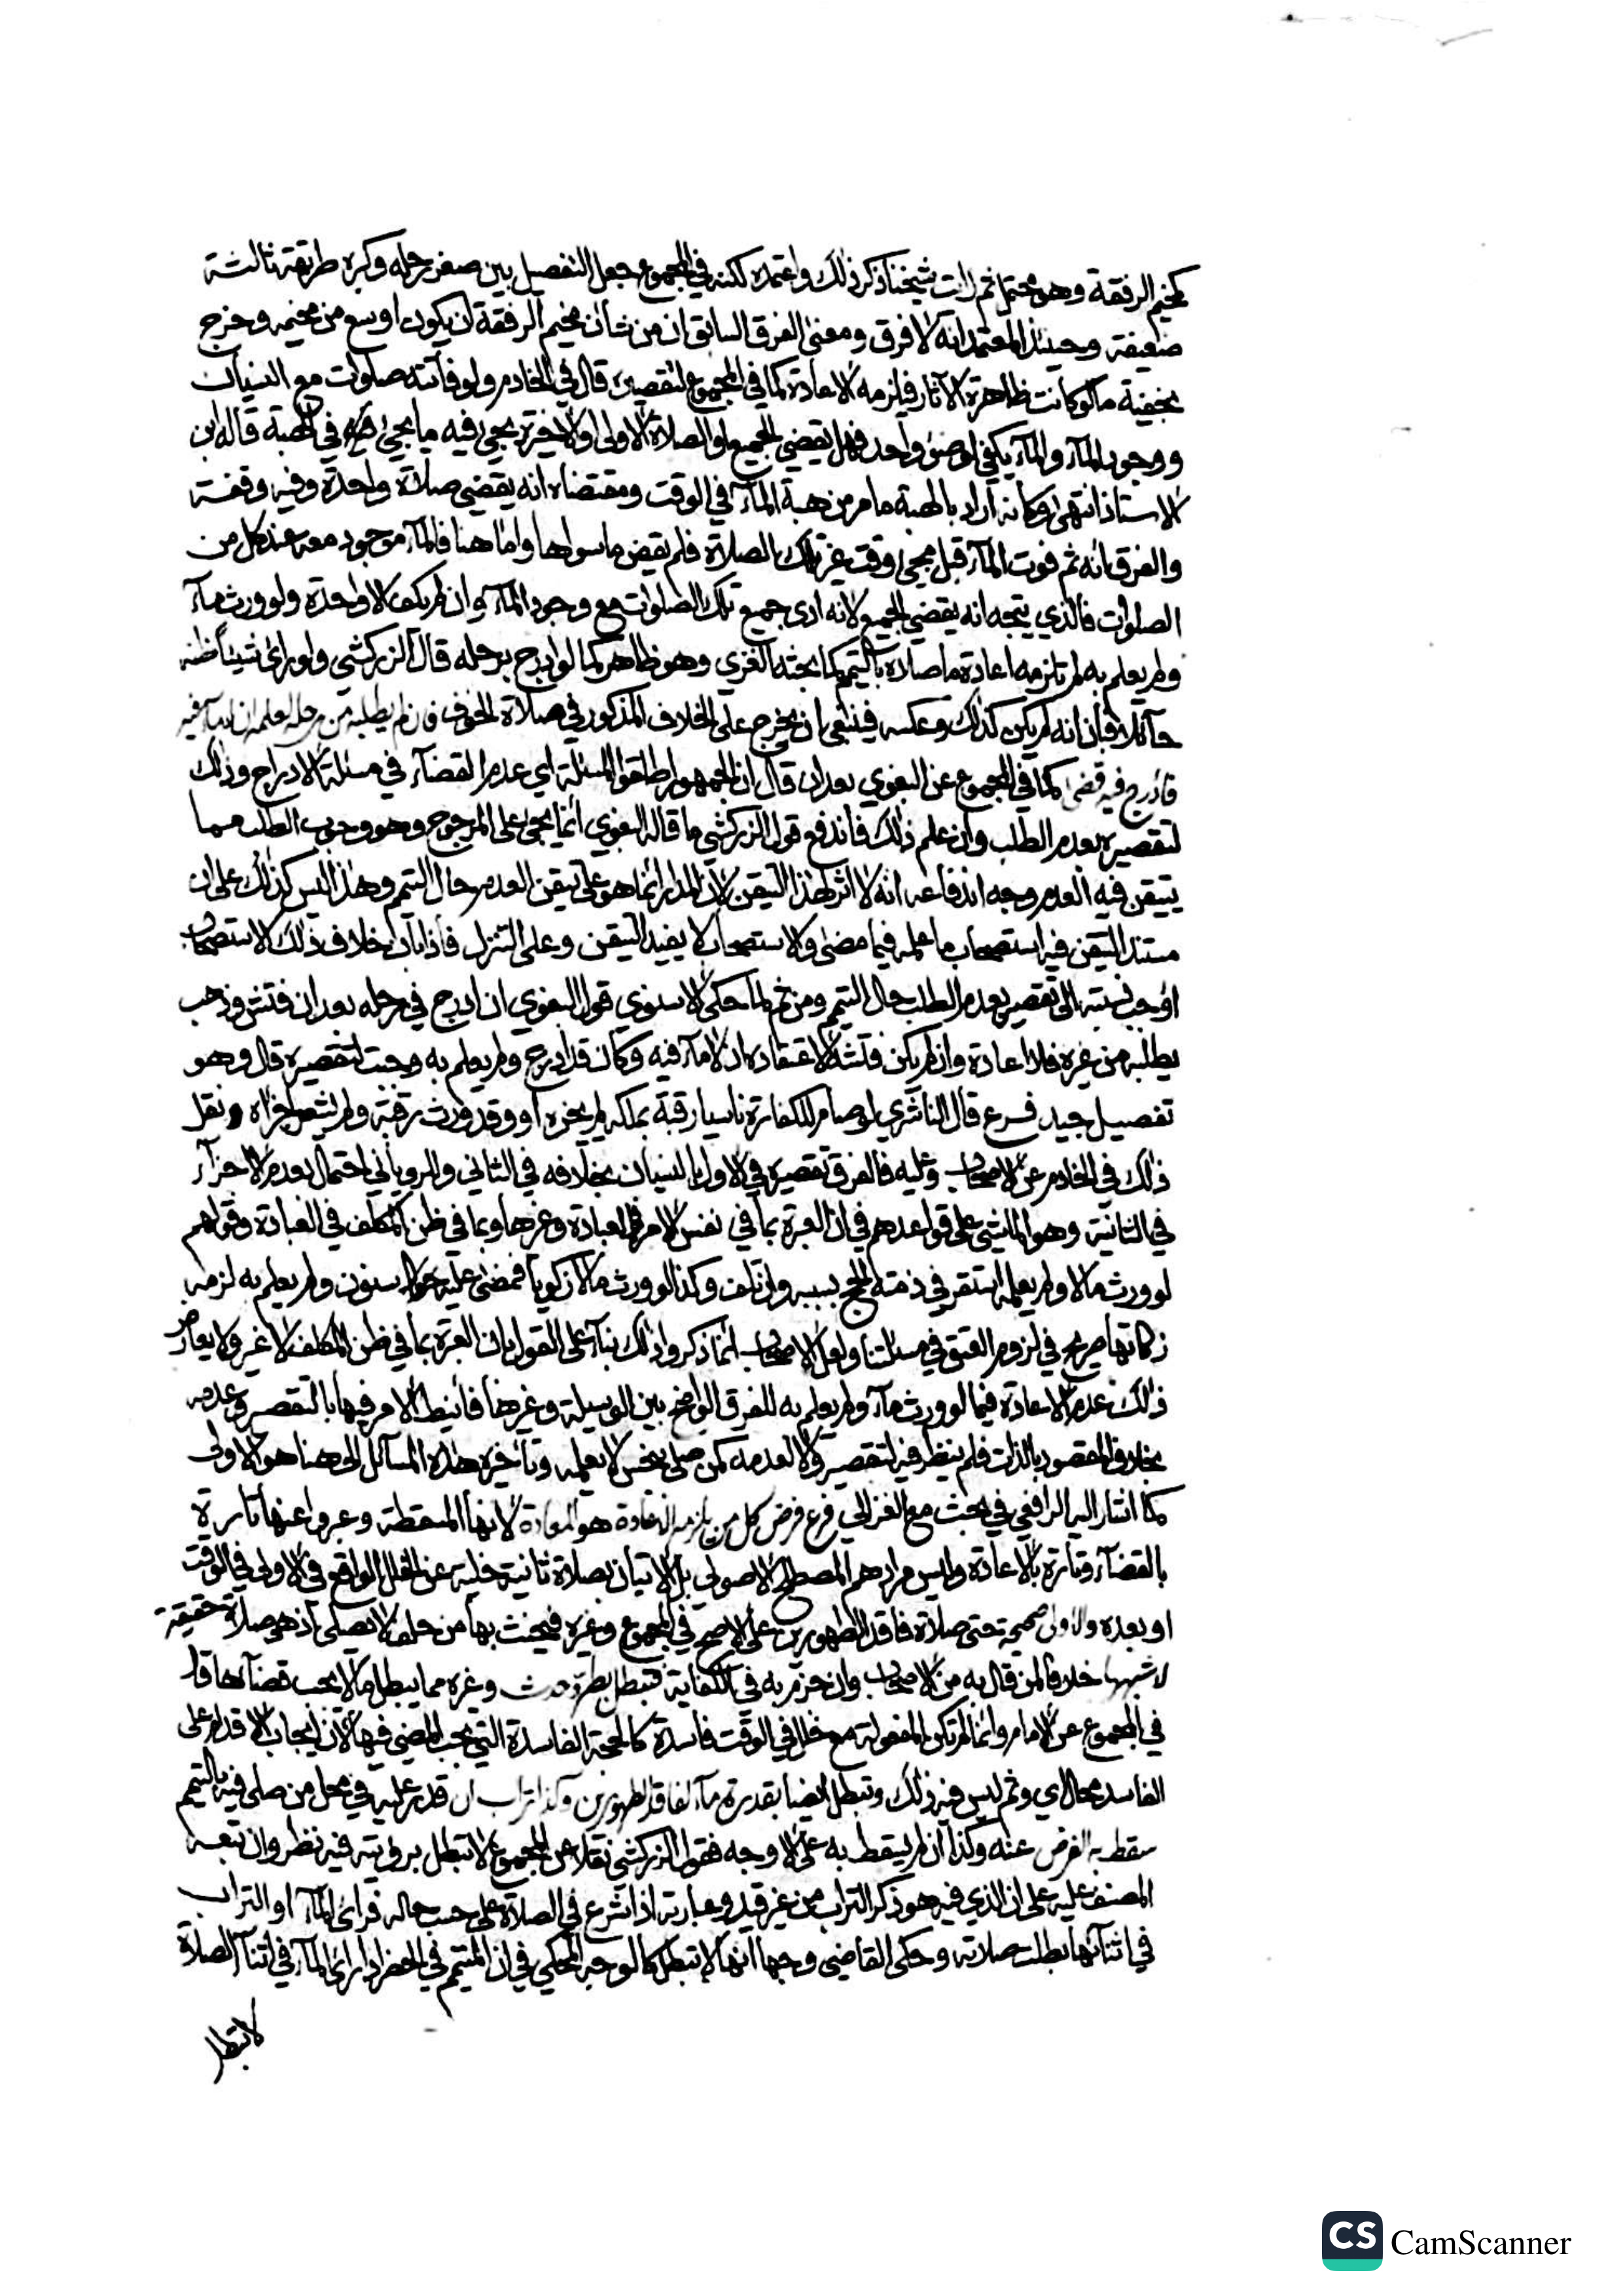 كمخيم الرفقة وهو محتمل ثم رأيت شيخنا ذكر ذلك واعتمده لكنه في المجموع جعل التفصيل بين صغر رحله وكبره طريقة ثالثة
ضعيفة وحينئذ المعتمد انه لا فرق ومعنى الفرق السابق ان من شأن مخيم الرفقة ان يكون اوسع من مخيمه وخرج
بخفية ما لو كانت ظاهرة الآثار فيلزمه الاعادة كما في المجموع لتقصيره قال في الخادم ولو فاتته صلوات مع النسيان
ووجود المآء والمآء يكفي لوضوء واحد فهل يقضي الجميع او الصلاة الاولى او الاخيرة يجيء فيه ما يجيء في الهبة قاله ابن
الاستاذ انتهى وكأنه اراد بالهبة ما مر من هبة المآء في الوقت ومقتضاه انه يقضي صلاة واحدة وفيه وقفة
والفرق انه ثم فوت المآء قبل مجيء وقت غير تلك الصلاة فلم يقض ما سواها واما هنا فالمآء موجود معه عند كل من
الصلوات فالذي يتجه انه يقضي الجميع لانه ادى جميع تلك الصلوات مع وجود المآء وان لم يكف الا واحدة ولو ورث مآء
ولم يعلم به لم تلزمه اعادة ما صلاه بالتيمم كما بحثه الغزي وهو ظاهر كما لو ادرج برحله قال الزركشي ولو رأى شيئا ظنه
حآئلا فبان انه لم يكن كذلك وعكسه فينبغي ان يخرج على الخلاف المذكور في صلاة الخوف فان لم يطلبه من رحله لعلمه ان لا مآء فيه
فأدرج فيه قضى كما في المجموع عن البغوي بعد ان قال ان الجمهور اطلقوا المسئلة اي عدم القضآء في مسئلة الادراج وذلك
لتقصيره بعدم الطلب وان علم ذلك فاندفع قول الزركشي ما قاله البغوي انما يجيء على المرجوح وهو وجوب الطلب مما
يتيقن فيه العدم وجه اندفاعه انه لا اثر لهذا التيقن لان المدار انما هو على تيقن العدم حال التيمم وهذا ليس كذلك على ان
مستند التيقن فيه استصحاب ما علمه فيما مضى والاستصحاب لا يفيد اليقين وعلى التنزل فاذا بان خلاف ذلك الاستصحاب
اوجب نسبته الى تقصير بعدم الطلب حال التيمم ومن ثم لما حكى الاسنوي قول البغوي ان ادرج في رحله بعد ان فتش وذهب
يطلبه من غيره فلا اعادة وان لم يكن فتشه لاعتقاده ان لا مآء فيه وكان قد ادرج ولم يعلم به وجبت لتقصيره قال وهو
تفصيل جيد فرع قال الناشري لو صام للكفارة ناسيا رقبة بملكه لم يجزه او وقد ورث رقبة ولم يشعر اجزأه ونقل
ذلك في الخادم عن الاصحاب وعليه فالفرق تقصيره في الاول بالنسيان بخلافه في الثاني وللروياني احتمال بعدم الاجزآء
في الثانية وهو الماشي على قواعدهم في ان العبرة بما في نفس الامر في العبادة وغيرها وبما في ظن المكلف في العبادة وقولهم
لو ورث مالا ولم يعلمه استقر في ذمته الحج بسببه وان تلف وكذا لو ورث مالا زكويا فمضى عليه سنون ولم يعلم به لزمه
زكاتها صريح في لزوم العتق في مسئلتنا ولعل الاصحاب انما ذكروا ذلك بنآء على القول بان العبرة بما في ظن المكلف لا غير ولا يعارض
ذلك عدم الاعادة فيما لو ورث مآء ولم يعلم به للفرق الواضح بين الوسيلة وغيرها فأنيط الامر فيها بالتقصير وعدمه
بخلاف المقصود بالذات فلم ينظر فيه لتقصير ولا لعدمه كمن صلى بنجس لا يعلمه وتأخيره هذه المسآئل الى هنا هو الاولى
كما اشار اليه الرافعي في بحث مع الغزالي فرع فرض كل من يلزمه الاعادة هو المعادة لانها المسقطة وعبروا عنها تارة
بالقضآء وتارة بالاعادة وليس مرادهم المصطلح الاصولي بل الاتيان بصلاة ثانية خلية عن الخلل الواقع في الاولى في الوقت
او بعده والاولى صحيحة حتى صلاة فاقد الطهورين على الاصح في المجموع وغيره فيحنث بها من حلف لا يصلي اذ هي صلاة حقيقة
لا شبهها خلافا لمن قال به من الاصحاب وان جزم به في الكفاية فتبطل بطرو حدث وغيره مما يبطل ما لا يجب قضآءها قال
في المجموع عن الامام وانما لم تكن المفعولة مع خلل في الوقت فاسدة كالحجة الفاسدة التي يجب المضي فيها لان ايجاب الاقدام على
الفاسد محال اي وثم ليس فيه ذلك وتبطل ايضا بقدرة مآء لفاقد الطهورين وكذا تراب ان قدر عليه في محل من صلى فيه بالتيمم
سقط به الفرض عنه وكذا ان لم يسقط به على الاوجه فقول الزركشي نقلا عن المجموع لا تبطل برؤيته فيه نظر وان تبعه
المصنف عليه على ان الذي فيه هو ذكر التراب من غير قيد وعبارته اذا شرع في الصلاة على حسب حاله فرأى المآء او التراب
في اثنآئها بطلت صلاته وحكى القاضي وجها انها لا تبطل كالوجه المحكي في ان المتيمم في الحضر اذا رأى المآء في اثنآء الصلاة
لا تبطل
CS CamScanner